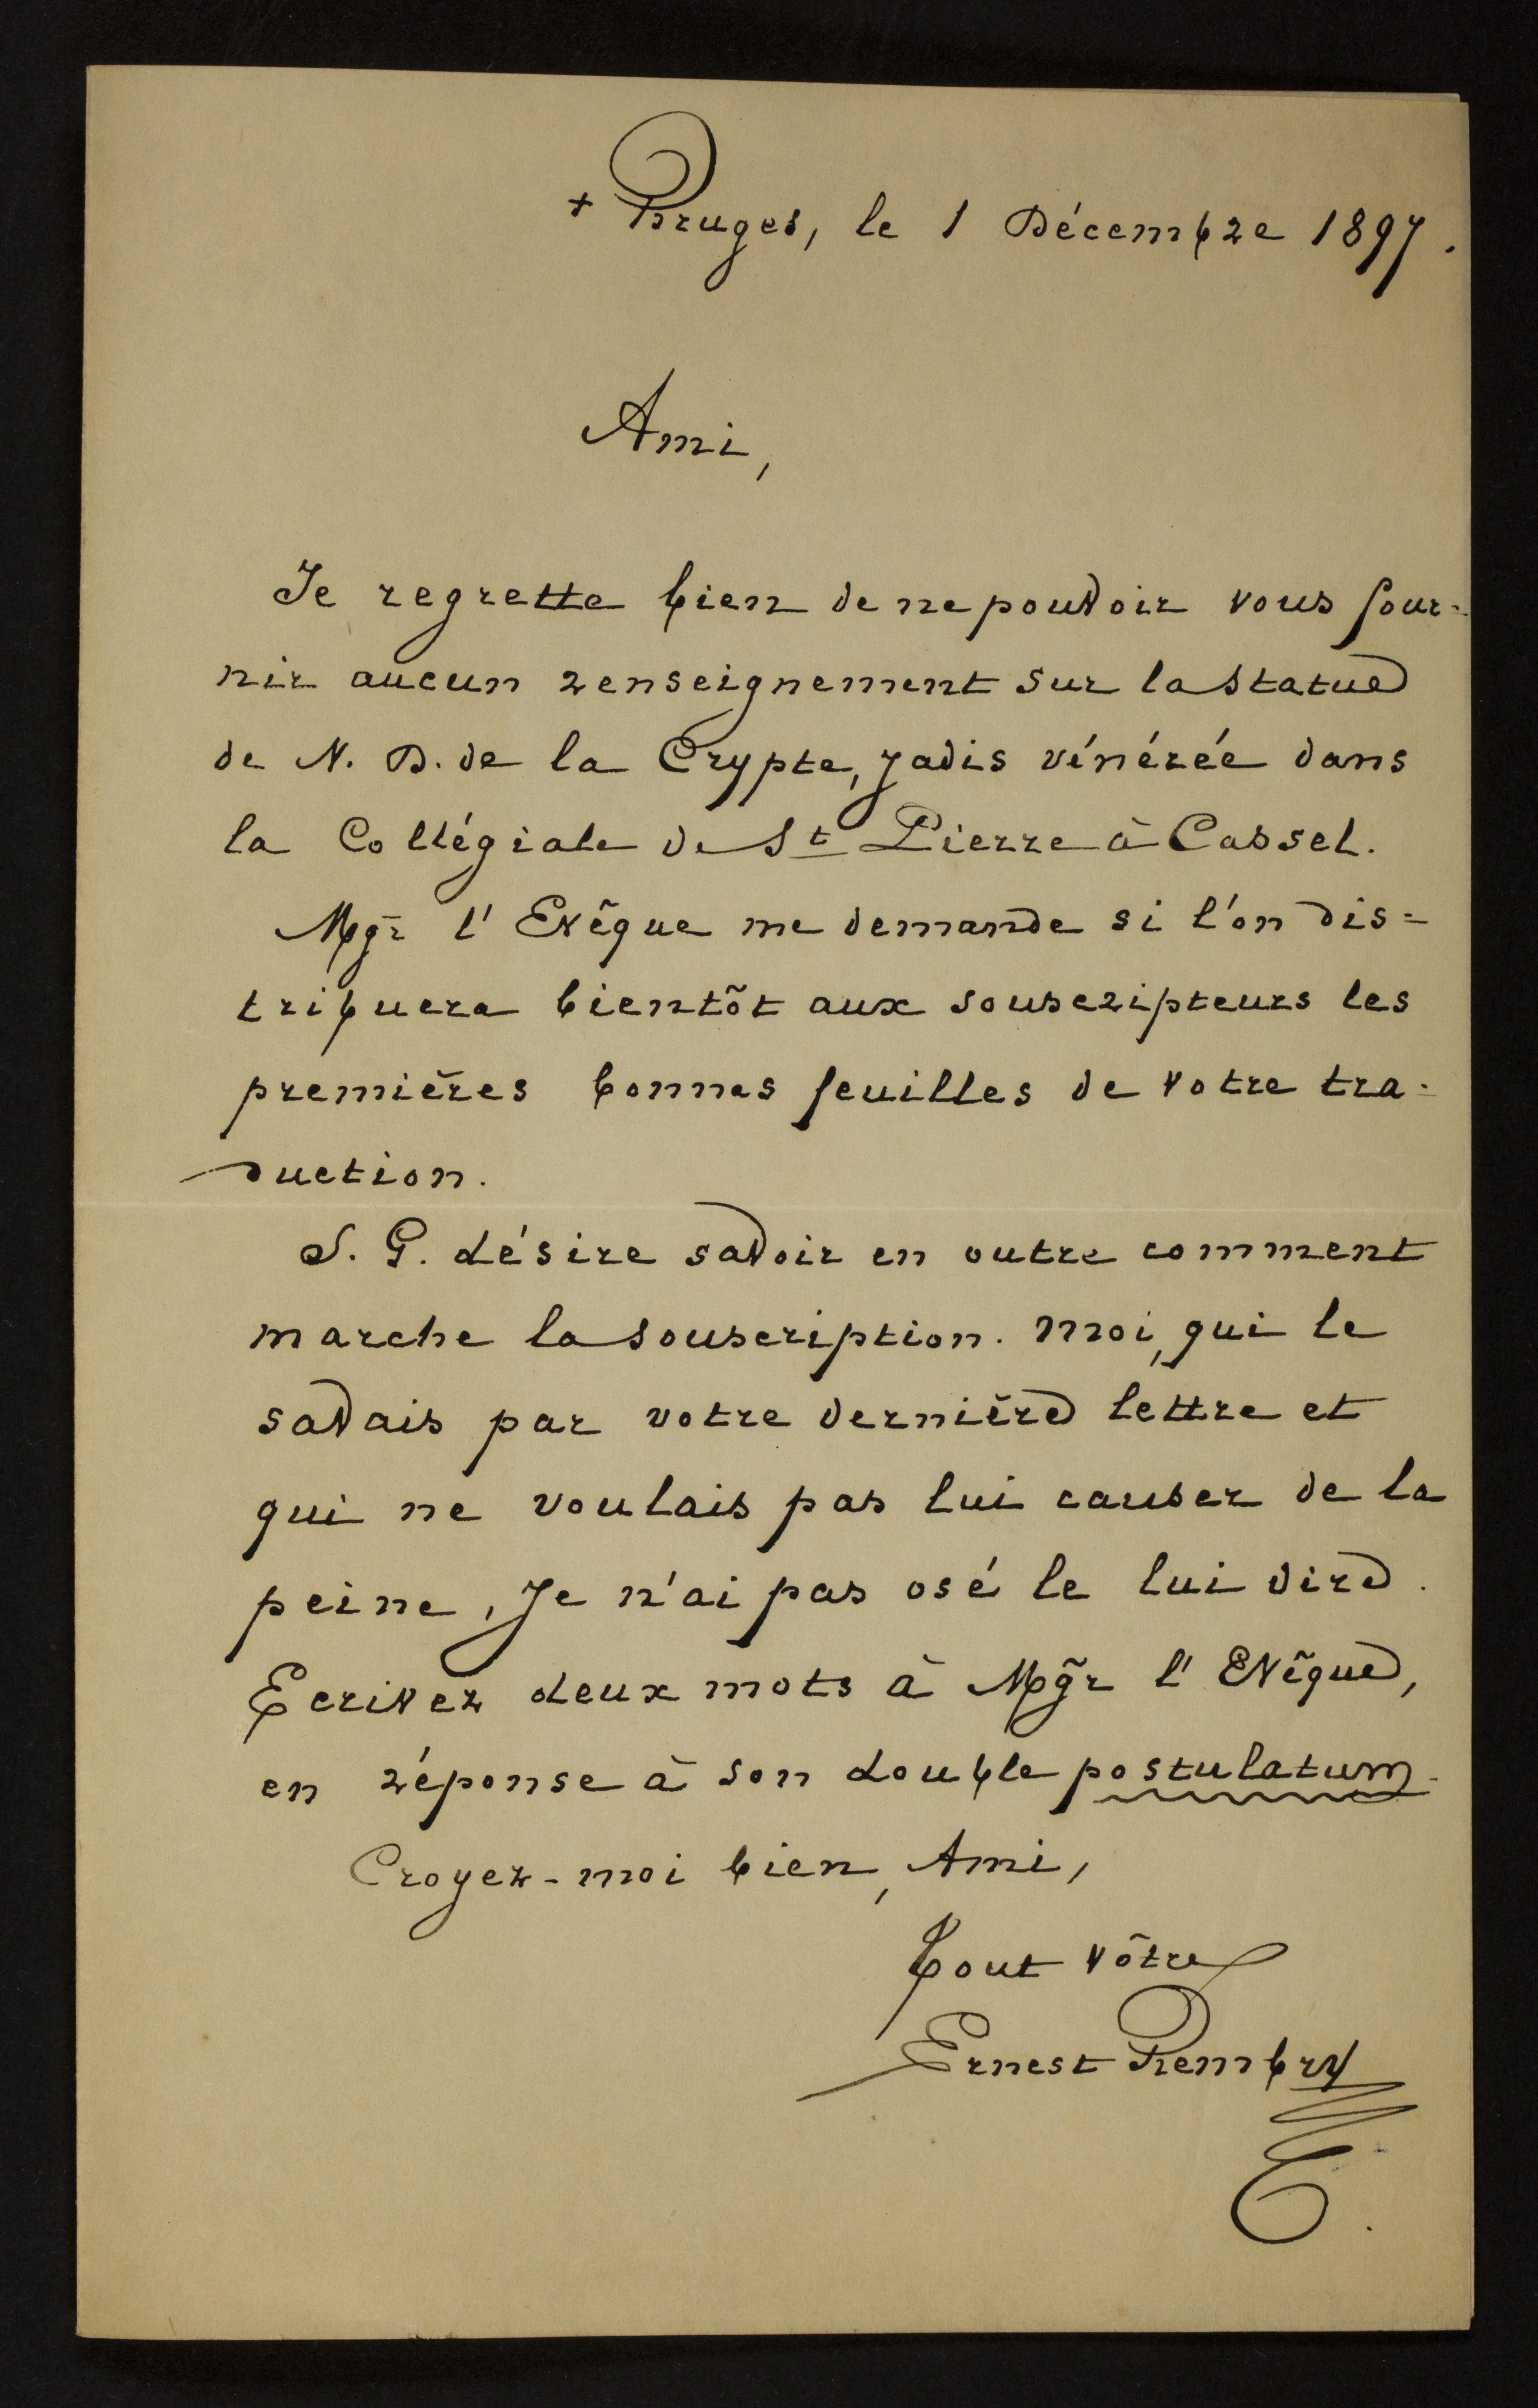 + Bruges, le 1 Décembre 1897.
Ami,
Je regrette bien de ne pouvoir vous four-
nir aucun renseignement sur la statue
de N. D. de la Crypte, jadis vénérée dans
la Collégiale de St Pierre à Cassel.
Mgr l'Evêque me demande si l'on dis=
tribuera bientôt aux souscripteurs les
premières bonnes feuilles de votre tra-
duction.
S. G. désire savoir en outre comment
marche la souscription. Moi, qui le
savais par votre dernière lettre et
qui ne voulais pas lui causer de la
peine, je n'ai pas osé le lui dire.
Ecrivez deux mots à Mgr l'Evêque,
en réponse à son double postulatum.
Croyez-moi bien, Ami,
Tout vôtre
Ernest Rembry